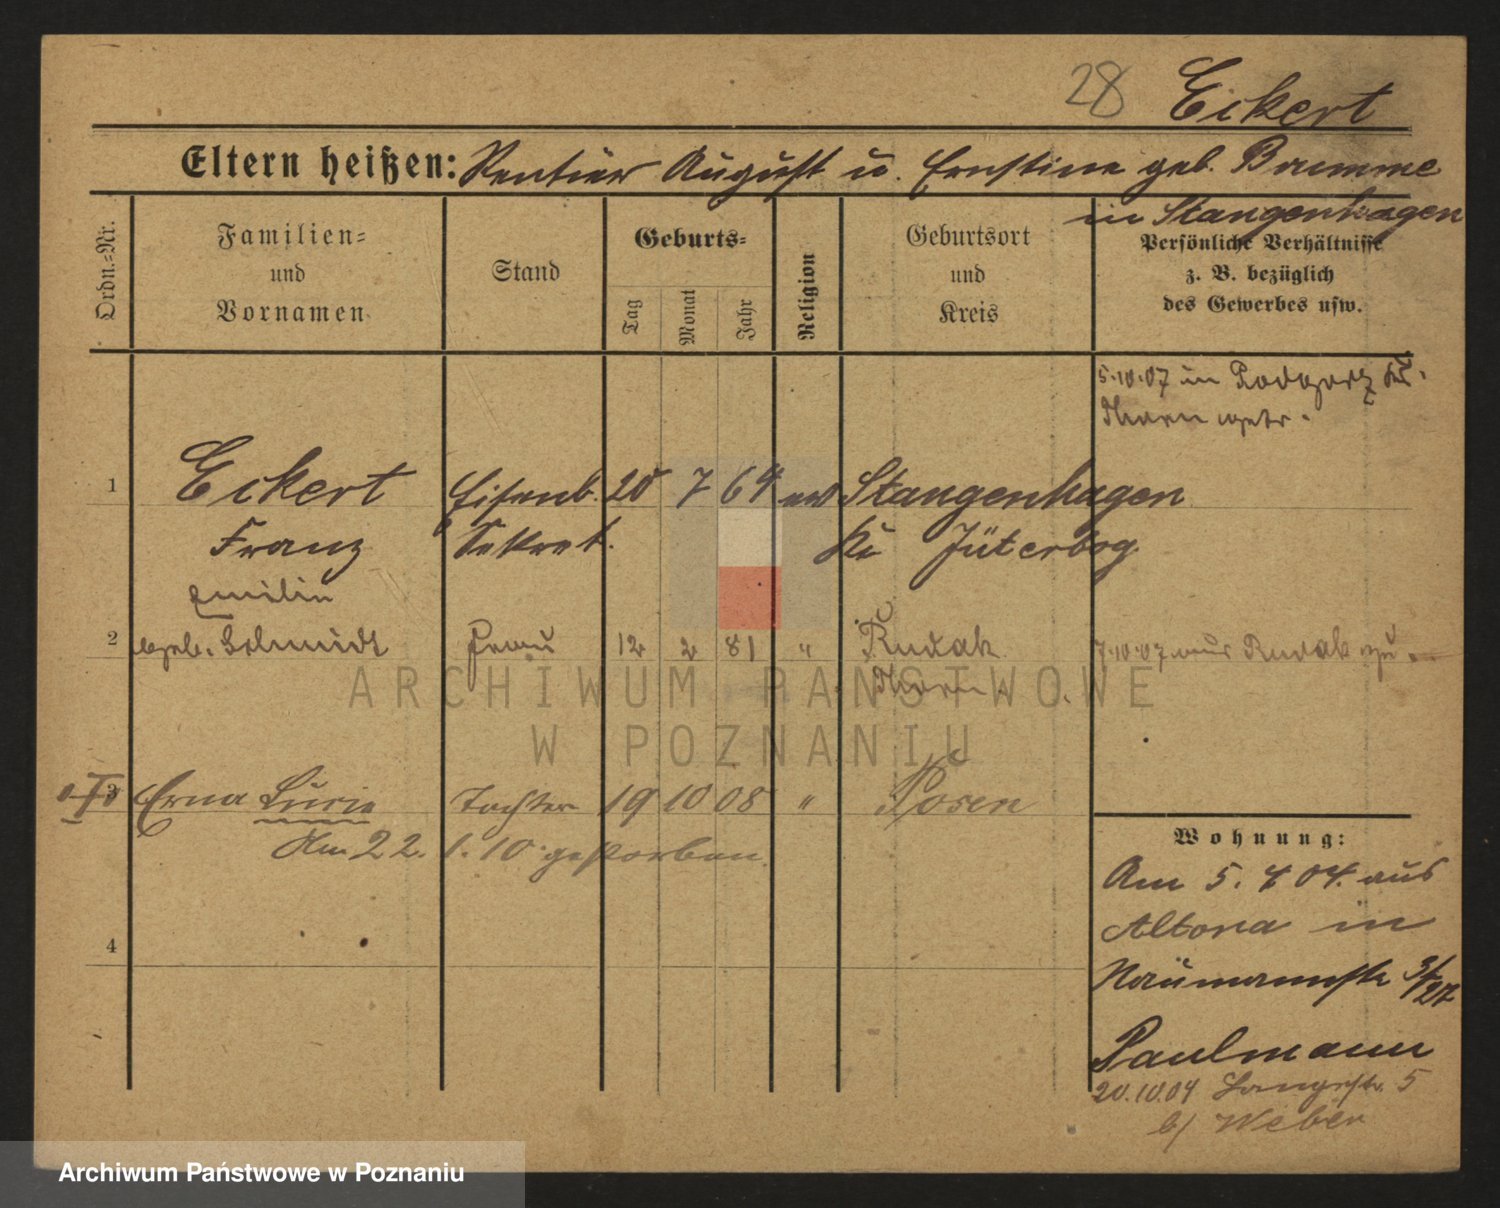 28 Eckert
Eltern heißen: Rentier August u. Ernstine geb. Bamme
in Stangenhagen
Ordn.-Nr.
Familien-
und
Vornamen
Stand
Geburts-
Tag
Monat
Jahr
Religion
Geburtsort
und
Kreis
Persönliche Verhältnisse
z. B. bezüglich
des Gewerbes usw.
5.10.07 in Podgorz Kr.
Thorn
1 Eckert Eisenb. 20 7 64 ev Stangenhagen
Franz Sekret. Kr Jüterbog
Emilie
2 geb. Schmidt Frau 12 2 81 " Rudak 7.10.07 aus Rudak
Thorn
3 Erna Lucie Tochter 19 10 08 " Posen
Am 22. 1. 10 gestorben.
4
Wohnung:
Am 5. 4 04. aus
Altona in
Naumannstr
Paulmann
20.10.04 Langestr. 5
b/ Weber
ARCHIWUM PAŃSTWOWE
W POZNANIU
Archiwum Państwowe w Poznaniu